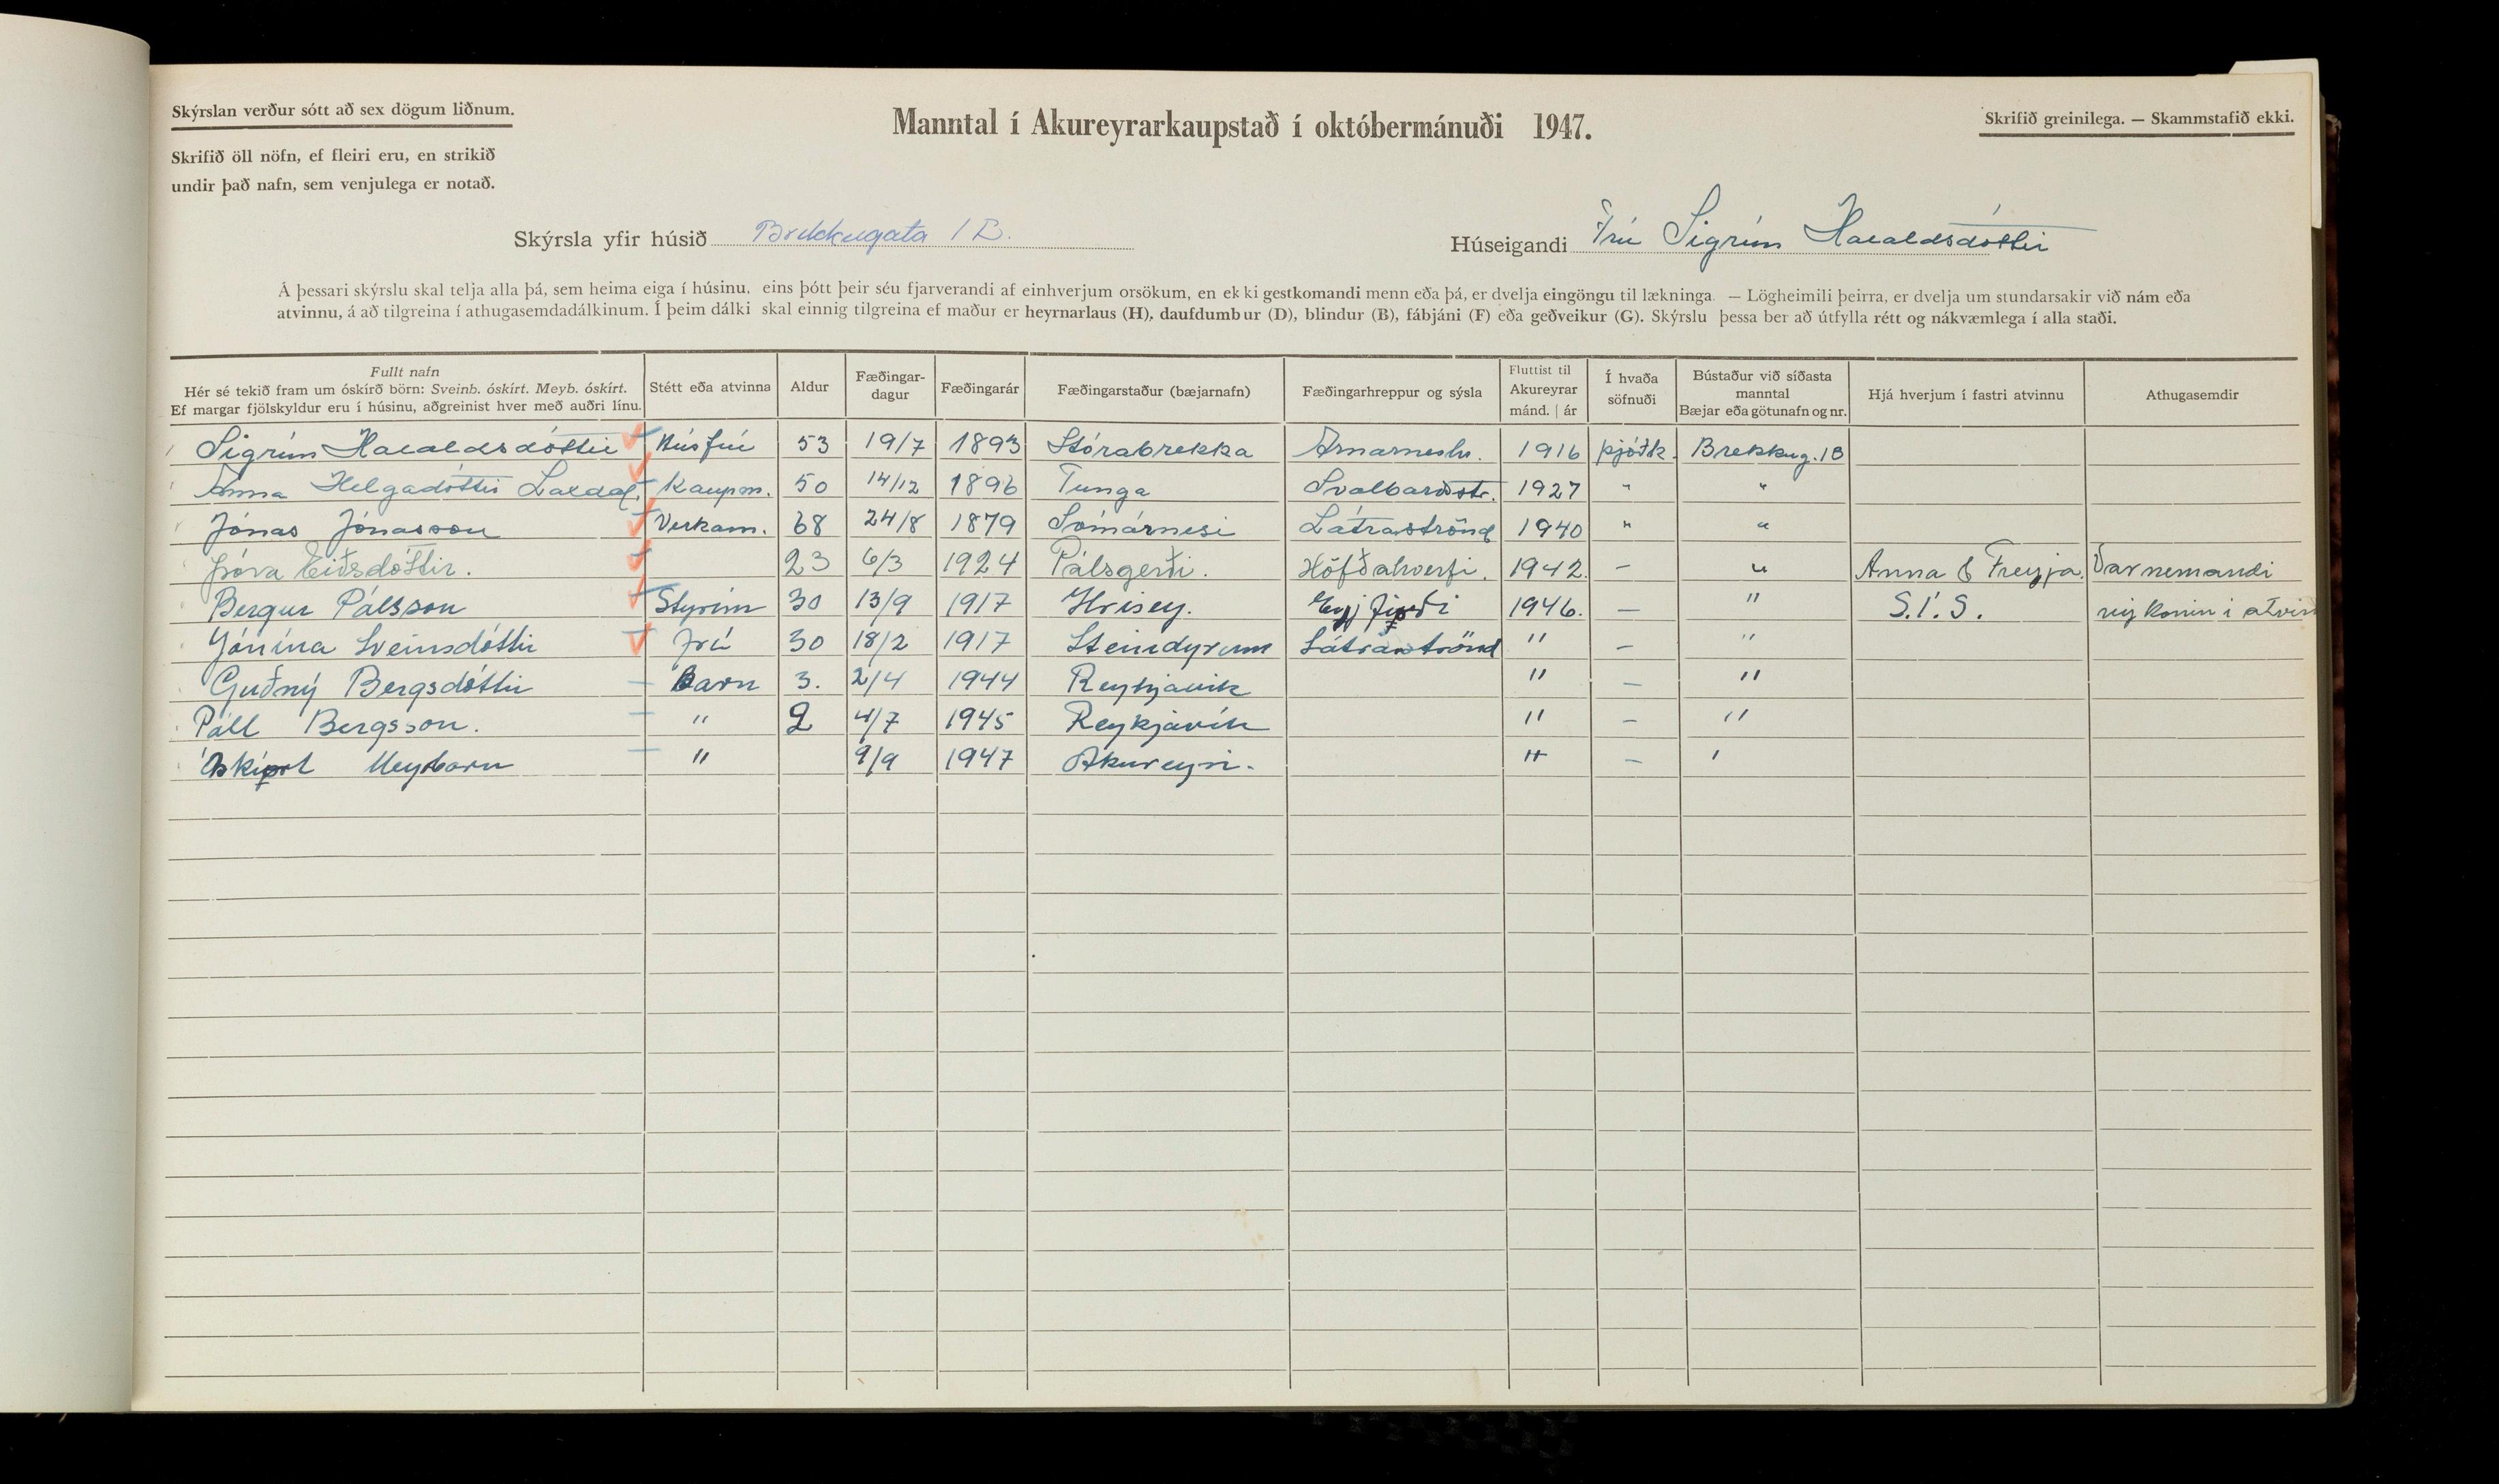 Skýrslan verður sótt að sex dögum liðnum.
Manntal í Akureyrarkaupstað í októbermánuði 1947.
Skrifið greinilega. — Skammstafið ekki.
Skrifið öll nöfn, ef fleiri eru, en strikið
undir það nafn, sem venjulega er notað.
Skýrsla yfir húsið Brekkugata 1B. Húseigandi Frú Sigrún Haraldsdóttir
Á þessari skýrslu skal telja alla þá, sem heima eiga í húsinu, eins þótt þeir séu fjarverandi af einhverjum orsökum, en ekki gestkomandi menn eða þá, er dvelja eingöngu til lækninga. — Lögheimili þeirra, er dvelja um stundarsakir við nám eða
atvinnu, á að tilgreina í athugasemdadálkinum. Í þeim dálki skal einnig tilgreina ef maður er heyrnarlaus (H), daufdumbur (D), blindur (B), fábjáni (F) eða geðveikur (G). Skýrslu þessa ber að útfylla rétt og nákvæmlega í alla staði.
Fullt nafn
Hér sé tekið fram um óskírð börn: Sveinb. óskírt. Meyb. óskírt.
Ef margar fjölskyldur eru í húsinu, aðgreinist hver með auðri línu.
Stétt eða atvinna
Aldur
Fæðingar-
dagur
Fæðingarár
Fæðingarstaður (bæjarnafn)
Fæðingarhreppur og sýsla
Fluttist til
Akureyrar
mánd. | ár
Í hvaða
söfnuði
Bústaður við síðasta
manntal
Bæjar eða götunafn og nr.
Hjá hverjum í fastri atvinnu
Athugasemdir
Sigrún Haraldsdóttir Húsfrú 53 19/7 1893 Stórabrekka Arnarneshr. 1916 þjóðk. Brekkug. 1B
Anna Helgadóttir Laxdal. Kaupm. 50 14/12 1896 Tunga Svalbarðstr. 1927 " "
Jónas Jónasson Verkam. 68 24/8 1879 Látraströnd 1940 " "
Þóra Eiðsdóttir. 23 6/3 1924 Pálsgerði. Höfðahverfi. 1942. – " Anna & Freyja.
Bergur Pálsson Styrim 30 13/9 1917 Hrísey. 1946. – " S.Í.S.
Jónína Sveinsdóttir frú 30 18/2 1917 Steindyrum Látraströnd " – "
Guðný Bergsdóttir Barn 3. 2/4 1944 Reykjavik " – "
Páll Bergsson. " 2 4/7 1945 Reykjavík " – "
Óskírt Meybarn " 9/9 1947 Akureyri. " – "